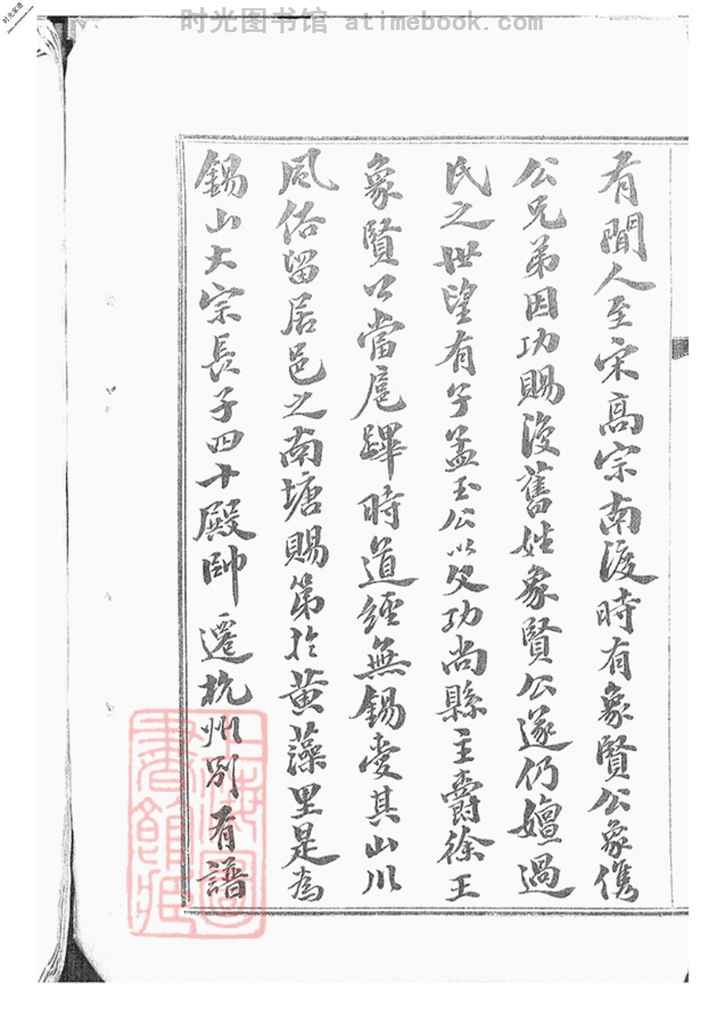 时光图书馆 atimebook.com
有聞人至宋高宗南渡時有象賢公象儁
公兄弟因功賜復舊姓象賢公遂仍嬗過
氏之世望有子孟玉公以父功尚縣主爵徐王
象賢公當扈蹕時道經無錫愛其山川
風俗留居邑之南塘賜第於黄藻里是為
錫山大宗長子四十殿帥遷杭州别有譜
上海圖
書館藏